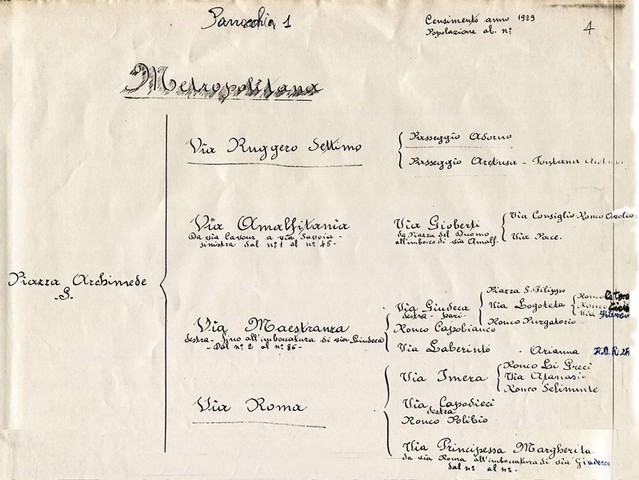 Parrocchia 1
Censimento anno 1929
Popolazione al. n°
4
Metropolitana
Piazza Archimede
S.
Via Ruggero Settimo
Passeggio Adorno
Passeggio Aretusa - Fontana
Via Amalfitania
Da via Cavour a via Savoia -
sinistra dal n° 1 al n° 45 -
Via Gioberti
da Piazza del Duomo
all'imbocco di via Amalf.
Via Consiglio Ronco
Via Pace.
Via Maestranza
destra - fino all'imboccatura di via Giudecca
- Dal n° 2 al n° 86 -
Via Giudeca
destra - pari -
Piazza S. Filippo
Via Logoteta
Ronco
Ronco
Via
Ronco Purgatorio
Ronco Capobianco
Via Laberinto - Arianna
Via Roma
Via Imera
Ronco Li Greci
Via Atanasio
Ronco Selinunte
Via Capodieci
destra
Ronco Polibio
Via Principessa Margherita
da via Roma all'imboccatura di via Giudecca
dal n° al n° -